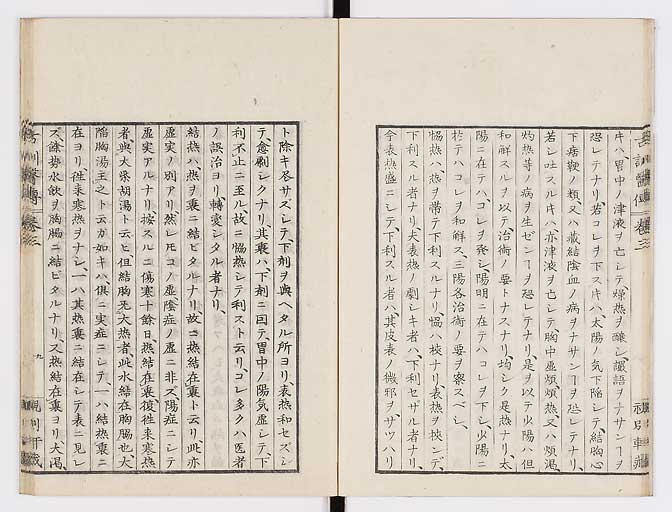 キハ、胃中ノ津液ヲ亡シテ、燥熱ヲ醸シ、讝語ヲナサンヿヲ
恐レテナリ、若コレヲ下スキハ、太陽ノ気下陥シテ、結胸心
下痞鞕ノ類、又ハ蔵結陰血ノ病ヲナサンヿヲ恐レテナリ、
若シ吐スルキハ、亦津液ヲ亡シテ、胸中虚煩煩熱、又ハ煩渇
灼熱等ノ病ヲ生ゼンヿヲ恐レテナリ、是ヲ以テ少陽ハ但
和解スルヲ以テ治術ノ要トナスナリ、均シク是熱ナリ、太
陽ニ在テハ、コレヲ発シ、陽明ニ在テハ、コレヲ下シ、少陽ニ
於テハ、コレヲ和解ス、三陽各治術ノ要ヲ察スベシ、
恊熱ハ、熱ヲ帯テ下利スルナリ、恊ハ挾ナリ、表熱ヲ挾ンデ、
下利スル者ナリ、夫表熱ノ劇シキ者ハ、下利セザル者ナリ、
今表熱盛ニシテ、下利スル者ハ、其皮表ノ微邪ヲ、サツハリ
ト除キ尽サズシテ、下剤ヲ與ヘタル所ヨリ、表熱和セズシ
テ、愈劇シクナリ、其裏ハ、下剤ニ因テ、胃中ノ陽気虚シテ、下
利不止ニ至ル、故ニ恊熱シテ利スト云リ、コレ多クハ医者
ノ誤治ヨリ、轉変シタル者ナリ、
結熱ハ、熱ヲ裏ニ結ビタルナリ、故ニ熱結在裏ト云リ、此亦
虚実ノ別アリ、然レ𪜈コノ虚陰症ノ虚ニ非ズ、陽症ニシテ
虚実アルナリ、按スルニ傷寒十餘日、熱結在裏、復往来寒熱
者、與大柴胡湯ト云ヒ、但結胸无大熱者、此水結在胸脇也、大
陥胸湯主之ト云カ如キハ、倶ニ実症ニシテ、一ハ結熱裏ニ
在ヨリ、往来寒熱ヲナシ、一ハ其熱裏ニ結在シテ、表ニ見レ
ズ、詠勢水飲ヲ胸脇ニ結ビタルナリ、又熱結在裏ヨリ、大渇、
巻三
九